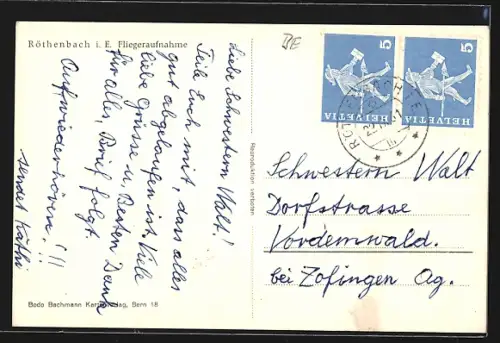 Röthenbach i. E. Fliegeraufnahme
BE
Liebe Schwestern Walt!
Teile Euch mit, dass alles
gut abgelaufen ist. Viele
liebe Grüsse u. Besten Dank
für alles, Brief folgt.
Aufwiederhören!!!
sendet Käthi
Bodo Bachmann Kartenverlag, Bern 18
Reproduktion verboten
5
HELVETIA
5
HELVETIA
Schwestern Walt
Dorfstrasse
Vordemwald.
bei Zofingen Ag.